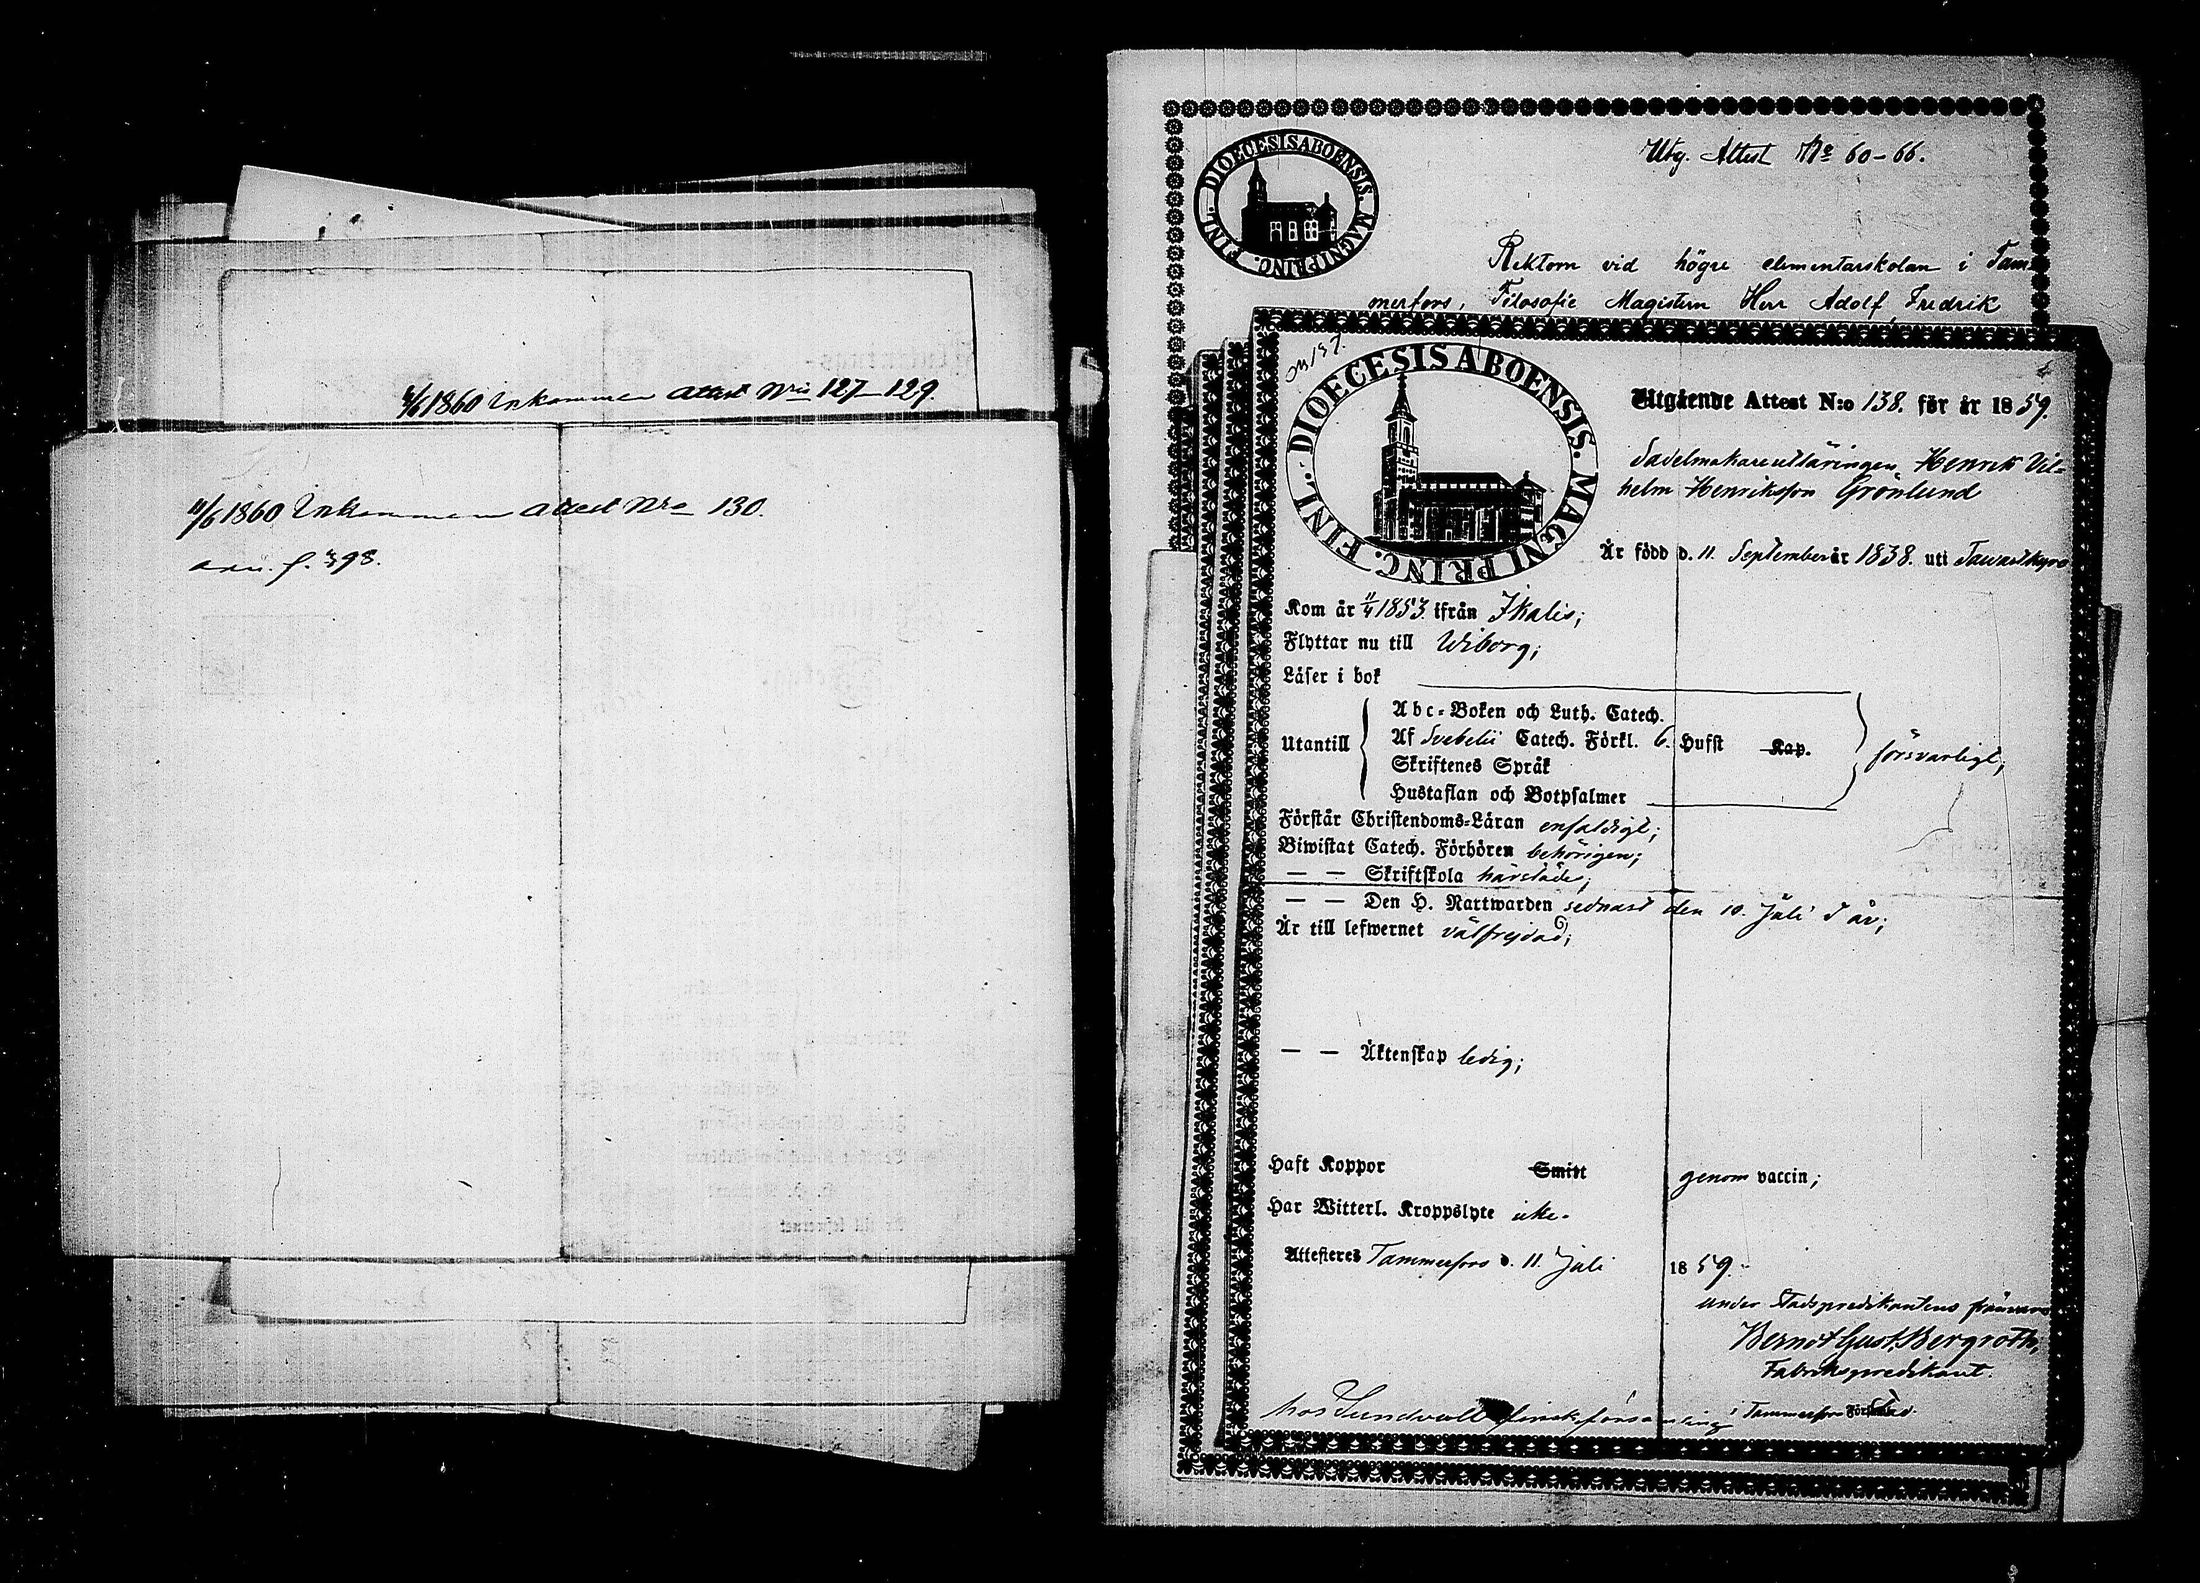 4/6 1860 Inkommen Attest Nris 127–129.
11/6 1860 Inkommen Attest Nro 130.
DIOECESIS ABOENSIS. MAGNI PRINC. FINL.
Utg. Attest No 60-66.
Rektorn vid högre elementarskolan i Tam-
merfors, Filosofie Magistern Herr Adolf Fredrik
DIOECESIS ABOENSIS. MAGNI PRINC. FINL.
Utgående Attest N:o 138. för år 1859.
Sadelmakareutläringen, Henrik Vil-
helm Henriksson Grönlund
Är född d. 11 September år 1838. uti Tawastkyro
Kom år 11/4 1853. ifrån Ikalis;
Flyttar nu till Wiborg;
Läser i bok
Utantill
Abc-Boken och Luth. Catech.
Af Svebelii Catech. Förkl. 6. Hufst Kap.
Skriftenes Språk
Hustaflan och Botpsalmer
försvarligt;
Förstår Christendoms-Läran enfaldigt;
Biwistat Catech. Förhören behörigen;
— — Skriftskola härstädes;
— — Den H. Nattwarden sednast den 10. Juli d. år;
Är till lefwernet välfrejdad;
— — Äktenskap ledig;
Haft Koppor Smitt genom vaccin;
Har Witterl. Kroppslyte icke.
Attesteres Tammerfors d. 11 Juli 1859.
under Stadspredikantens frånvaro
Bernd Gust. Bergroth,
Fabrikspredikant.
i Tammerfors
hos Sundvall finsk församling